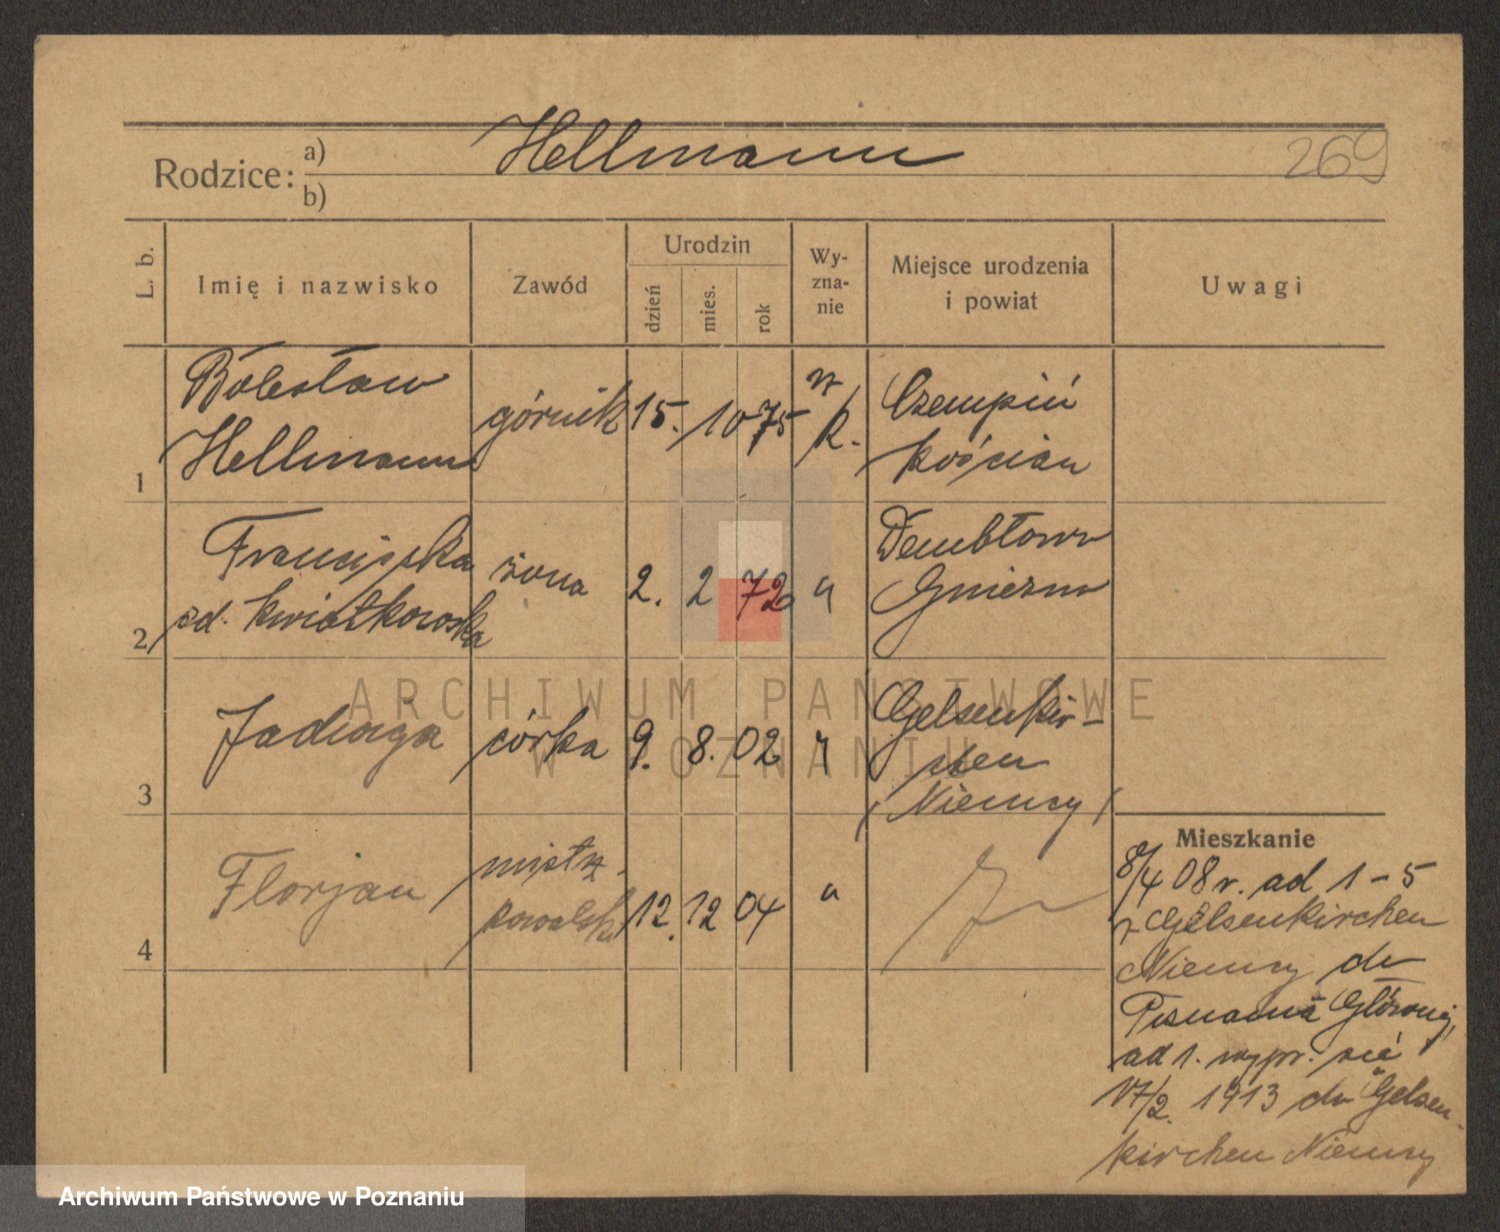 Hellmann
269
Rodzice:
a)
b)
L. b.
Imię i nazwisko
Zawód
Urodzin
dzień
mies.
rok
Wy-
zna-
nie
Miejsce urodzenia
i powiat
Uwagi
1
Bolesław
Hellmann
górnik
15. 10 75
r/k.
Czempiń
Kościan
2
Franciszka
zd. Kwiatkowska
żona
2. 2 72
"
Dembłowo
Gniezno
3
Jadwiga
córka
9. 8. 02
"
Gelsenkir-
chen
(Niemcy)
4
Florjan
mistrz
kowalski
12. 12 04
"
Mieszkanie
8/4 08 r. ad 1-5
z Gelsenkirchen
Niemcy do
Poznania Głównej,
ad 1. wypr. się
17/2. 1913 do Gelsen-
kirchen Niemcy
ARCHIWUM PAŃSTWOWE
W POZNANIU
Archiwum Państwowe w Poznaniu